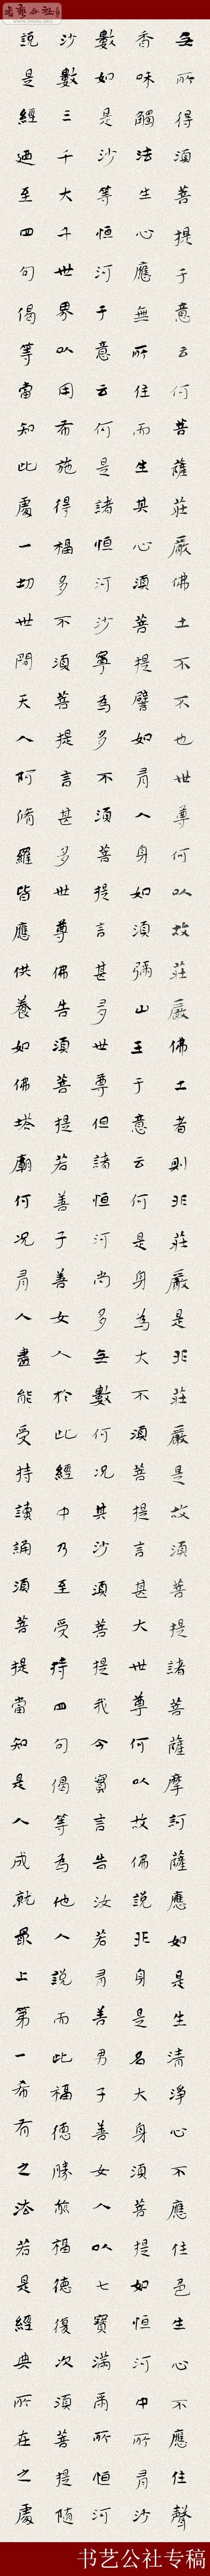 书艺公社
WWW.SHUFA.ORG
無所得須菩提于意云何菩薩莊嚴佛土不不也世尊何以故莊嚴佛土者則非莊嚴是非莊嚴是故須菩提諸菩薩摩訶薩應如是生清淨心不應住色生心不應住聲
香味觸法生心應無所住而生其心須菩提譬如有人身如須彌山王于意云何是身為大不須菩提言甚大世尊何以故佛說非身是名大身須菩提如恒河中所有沙
數如是沙等恒河于意云何是諸恒河沙寧為多不須菩提言甚多世尊但諸恒河尚多無數何況其沙須菩提我今實言告汝若有善男子善女人以七寶滿爾所恒河
沙數三千大千世界以用布施得福多不須菩提言甚多世尊佛告須菩提若善子善女人於此經中乃至受持四句偈等為他人說而此福德勝前福德復次須菩提隨
說是經迺至四句偈等當知此處一切世間天人阿脩羅皆應供養如佛塔廟何況有人盡能受持讀誦須菩提當知是人成就最上第一希有之法若是經典所在之處
书艺公社专稿